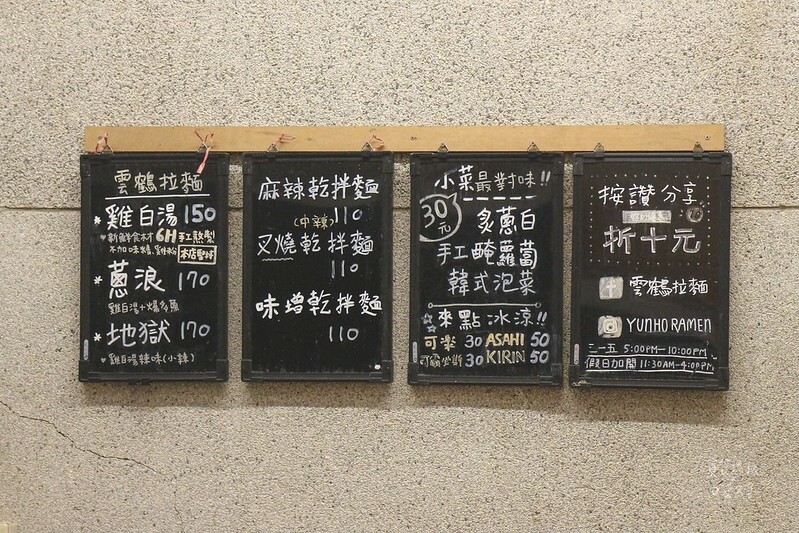 雲鶴拉麵
*雞白湯 150
♥新鮮食材 6H 手工熬製
不加味精、雞粉 本店堅持
*蔥浪 170
雞白湯+爆多蔥
*地獄 170
♥雞白湯辣味(小辣)
麻辣乾拌麵
(中辣) 110
叉燒乾拌麵
110
味增乾拌麵
110
小菜最對味!!
30元
炙蔥白
手工醃蘿蔔
韓式泡菜
來點冰涼!!
可樂 30 ASAHI 50
可爾必斯 30 KIRIN 50
按讚分享
折十元
f 雲鶴拉麵
YUNHO RAMEN
三~五 5:00PM-10:00PM
假日加開 11:30AM-4:00PM